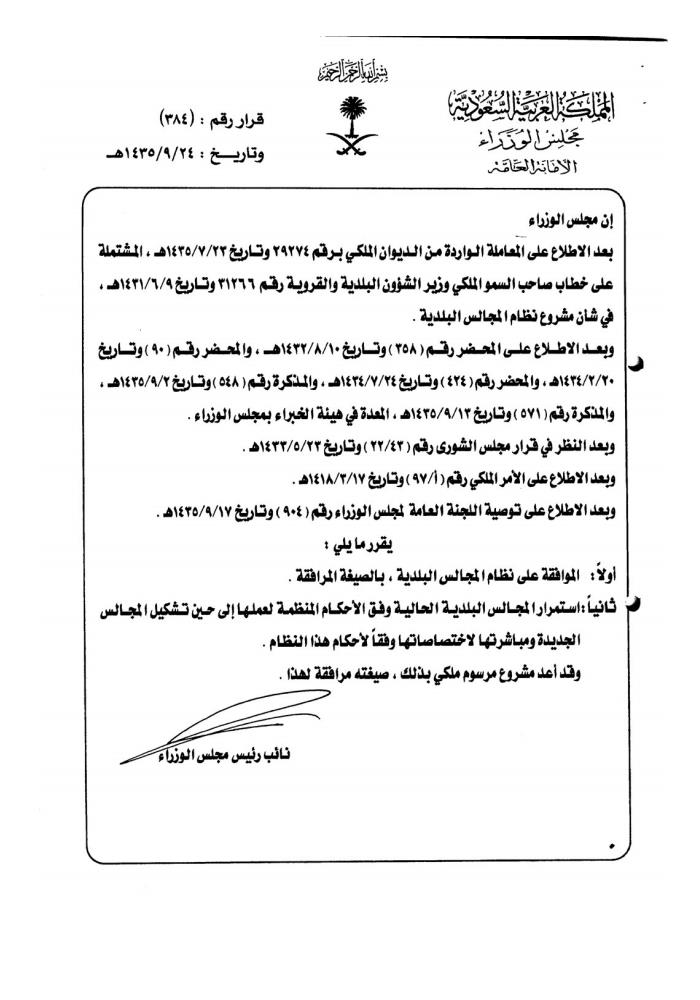 بسم الله الرحمن الرحيم
المملكة العربية السعودية
مجلس الوزراء
الأمانة العامة
قرار رقم : (٣٨٤)
وتاريخ : ١٤٣٥/٩/٢٤هـ
إن مجلس الوزراء
بعد الاطلاع على المعاملة الواردة من الديوان الملكي برقم ٢٩٢٧٤ وتاريخ ١٤٣٥/٧/٢٣هـ ، المشتملة
على خطاب صاحب السمو الملكي وزير الشؤون البلدية والقروية رقم ٣١٢٦٦ وتاريخ ١٤٣١/٦/٩هـ ،
في شان مشروع نظام المجالس البلدية .
وبعد الاطلاع على المحضر رقم (٣٥٨) وتاريخ ١٤٣٢/٨/١٠هـ ، والمحضر رقم (٩٠) وتاريخ
١٤٣٤/٢/٢٠هـ ، والمحضر رقم (٤٢٤) وتاريخ ١٤٣٤/٧/٢٤هـ ، والمذكرة رقم (٥٤٨) وتاريخ ١٤٣٥/٩/٢هـ ،
والمذكرة رقم (٥٧١) وتاريخ ١٤٣٥/٩/١٣هـ ، المعدة في هيئة الخبراء بمجلس الوزراء .
وبعد النظر في قرار مجلس الشورى رقم (٢٢/٤٣) وتاريخ ١٤٣٣/٥/٢٣هـ .
وبعد الاطلاع على الأمر الملكي رقم (أ/٩٧) وتاريخ ١٤١٨/٣/١٧هـ .
وبعد الاطلاع على توصية اللجنة العامة لمجلس الوزراء رقم (٩٠٤) وتاريخ ١٤٣٥/٩/١٧هـ .
يقرر ما يلي :
أولاً: الموافقة على نظام المجالس البلدية ، بالصيغة المرافقة .
ثانياً: استمرار المجالس البلدية الحالية وفق الأحكام المنظمة لعملها إلى حين تشكيل المجالس
الجديدة ومباشرتها لاختصاصاتها وفقاً لأحكام هذا النظام .
وقد أعد مشروع مرسوم ملكي بذلك ، صيغته مرافقة لهذا .
نائب رئيس مجلس الوزراء